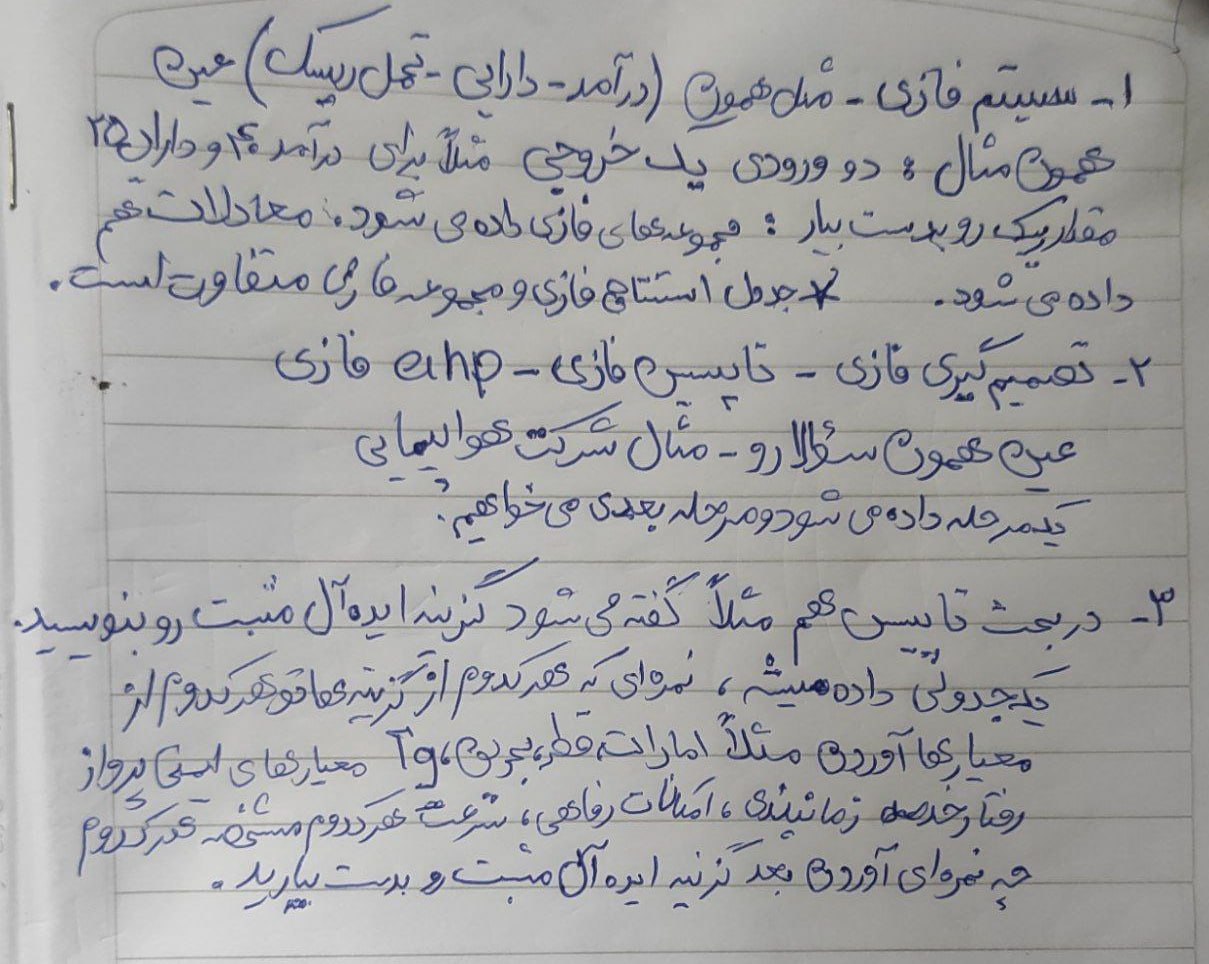 ۱- سیستم فازی - مثل همون (درآمد - دارایی - تحمل ریسک) عین
همون مثال : دو ورودی یک خروجی مثلاً برای درآمد ۴۰ و دارای ۲۵
مقدار ریسک رو بدست بیار : مجموعه‌های فازی داده می شود. معادلات هم
داده می شود. * جدول استنتاج فازی و مجموعه فازی متفاوت است.
۲- تصمیم گیری فازی - تاپسیس فازی - ahp فازی
عین همون سؤالا رو - مثال شرکت هواپیمایی
یک مرحله داده می شود و مرحله بعدی می خواهیم.
۳- در بحث تاپسیس هم مثلاً گفته می شود گزینه ایده آل مثبت رو بنویسید.
یک جدولی داده میشه ، نمره‌ای که هرکدوم از گزینه‌ها تو هرکدوم از
معیارها آوردن مثلاً امارات، قطر، بحرین، و معیارهای ایمنی پرواز
رفتار خدمه زمانبندی ، امکانات رفاهی ، سرعت هرکدوم مشخصه هرکدوم
چه نمره‌ای آوردن بعد گزینه ایده آل مثبت رو بدست بیارید .